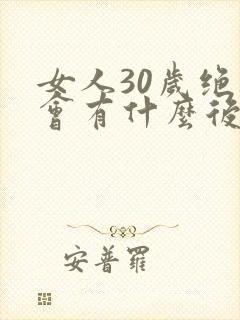 女人30歲绝
會有什麼後
安普羅